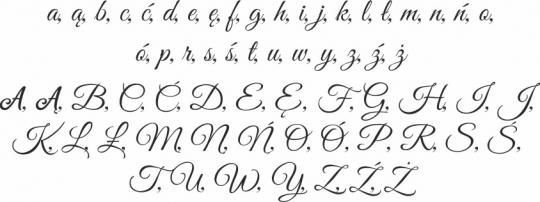 a, ą, b, c, ć, d, e, ę, f, g, h, i, j, k, l, ł, m, n, ń, o,
ó, p, r, s, ś, t, u, w, y, z, ź, ż
A, Ą, B, C, Ć, D, E, Ę, F, G, H, I, J,
K, L, Ł, M, N, Ń, O, Ó, P, R, S, Ś,
T, U, W, Y, Z, Ź, Ż